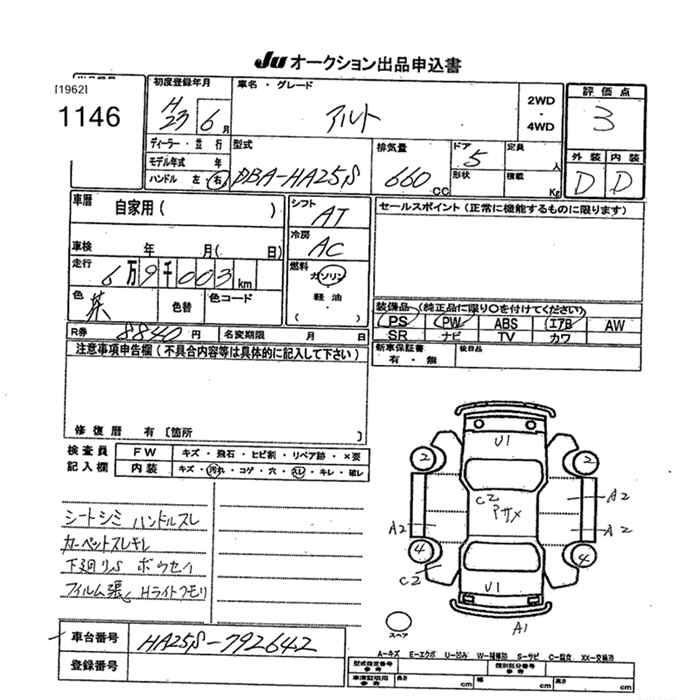 JU オークション出品申込書
[1962]
1146
初度登録年月
H23 6月
車名・グレード
アルト
2WD
・
4WD
評価点
3
ディーラー・並行
モデル年式 年
ハンドル 左・右
型式
DBA-HA25S
排気量
660 CC
ドア 5
形状
定員 人
積載 Kg
外装 内装
D D
車歴 自家用( )
車検 年 月( 日)
走行
6万9千003km
色 茶
色替
色コード
シフト
AT
冷房
AC
燃料
ガソリン
・
軽油
( )
セールスポイント(正常に機能するものに限ります)
装備品(純正品に限り○を付けてください)
PS PW ABS エアB AW
SR ナビ TV カワ
R券 8840円
名変期限 月 日
新車保証書
有・無
後日品
注意事項申告欄(不具合内容等は具体的に記入して下さい)
修復暦 有[箇所 ]
検査員
記入欄
FW キズ・飛石・ヒビ割・リペア跡・×要
内装 キズ・汚れ・コゲ・穴・スレ・キレ・破レ
シートシミ ハンドルスレ
カーペットスレキレ
下廻りS ボウセイ
フィルム張 Hライトクモリ
U1
2 2
C2 アサメ
A2
A2 A2
4 4
C2
U1
A1
スペア
車台番号 HA25S-792642
登録番号
A-キズ E-エクボ U-凹み W-補修跡 S-サビ C-腐食 XX-交換済
型式指定番号
参考
類別区分番号
参考
車庫証明用
参考
長さ cm 幅 cm 高さ cm